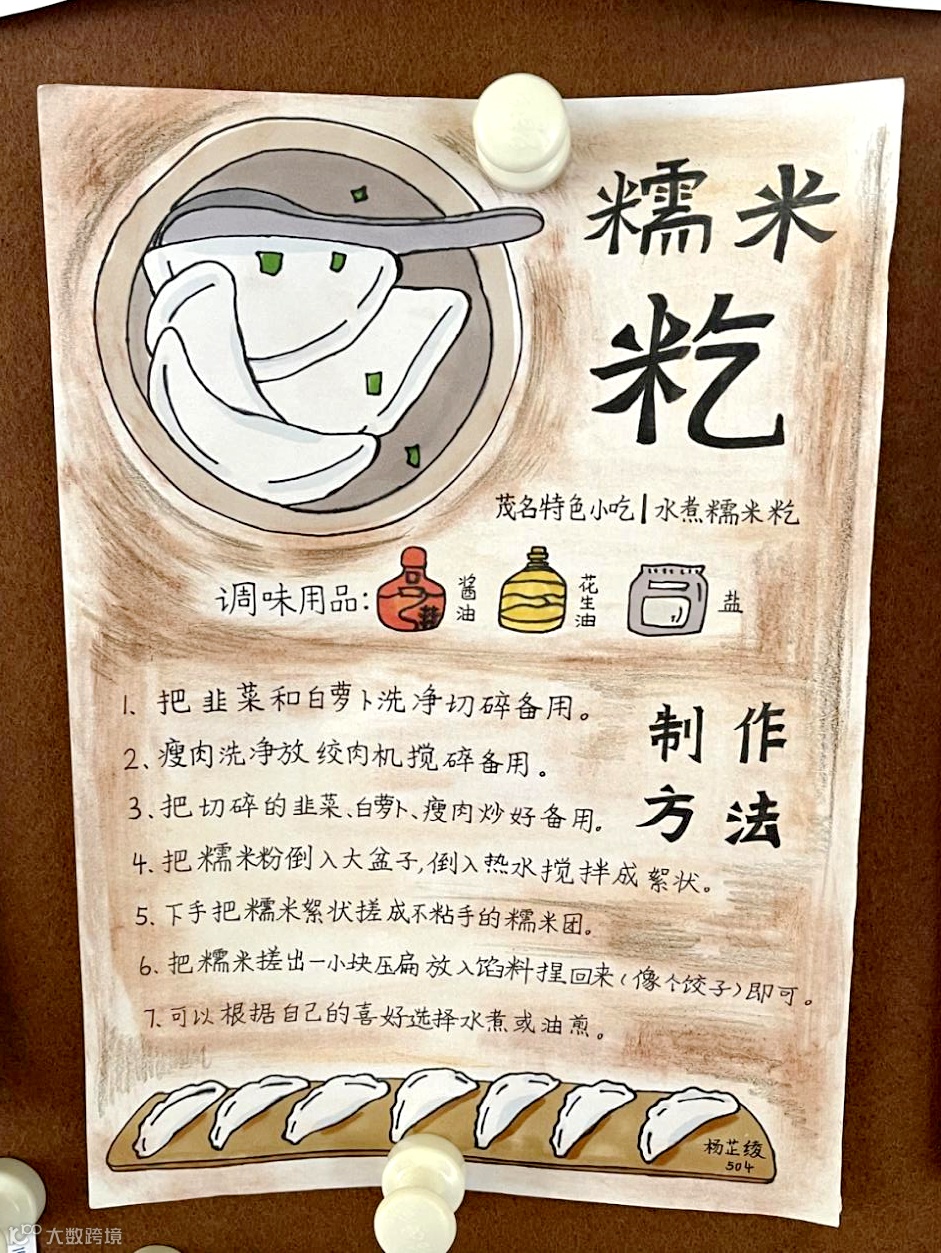 糯米
籺
茂名特色小吃|水煮糯米籺
调味用品:
酱油
花生油
盐
制作
方法
1、把韭菜和白萝卜洗净切碎备用。
2、瘦肉洗净放绞肉机搅碎备用。
3、把切碎的韭菜、白萝卜、瘦肉炒好备用。
4、把糯米粉倒入大盆子,倒入热水搅拌成絮状。
5、下手把糯米絮状搓成不粘手的糯米团。
6、把糯米搓出一小块压扁放入馅料捏回来(像个饺子)即可。
7、可以根据自己的喜好选择水煮或油煎。
杨芷绫
504
大数跨境